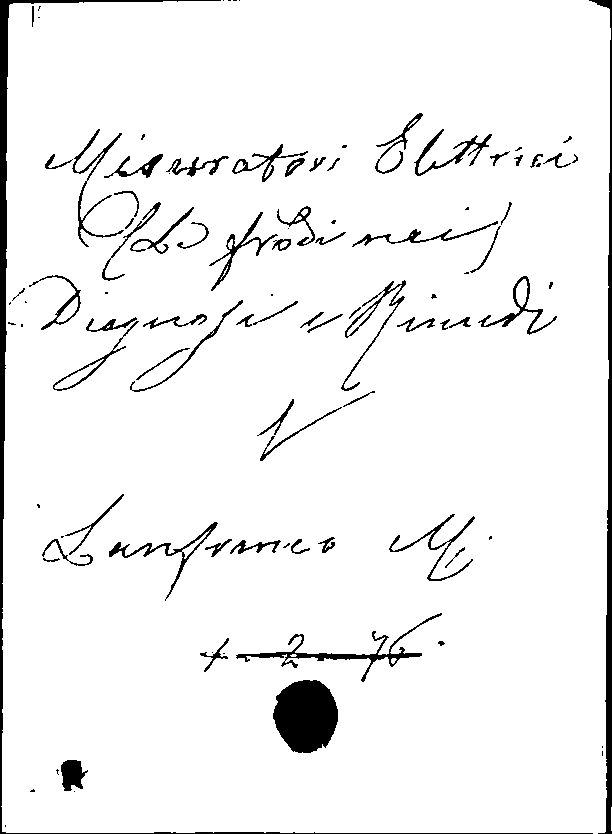 Misurratori Elettrici
(Le frodi nei)
Diagnosi e Rimedi
V
Lanfranco M.
1. 2. 76.